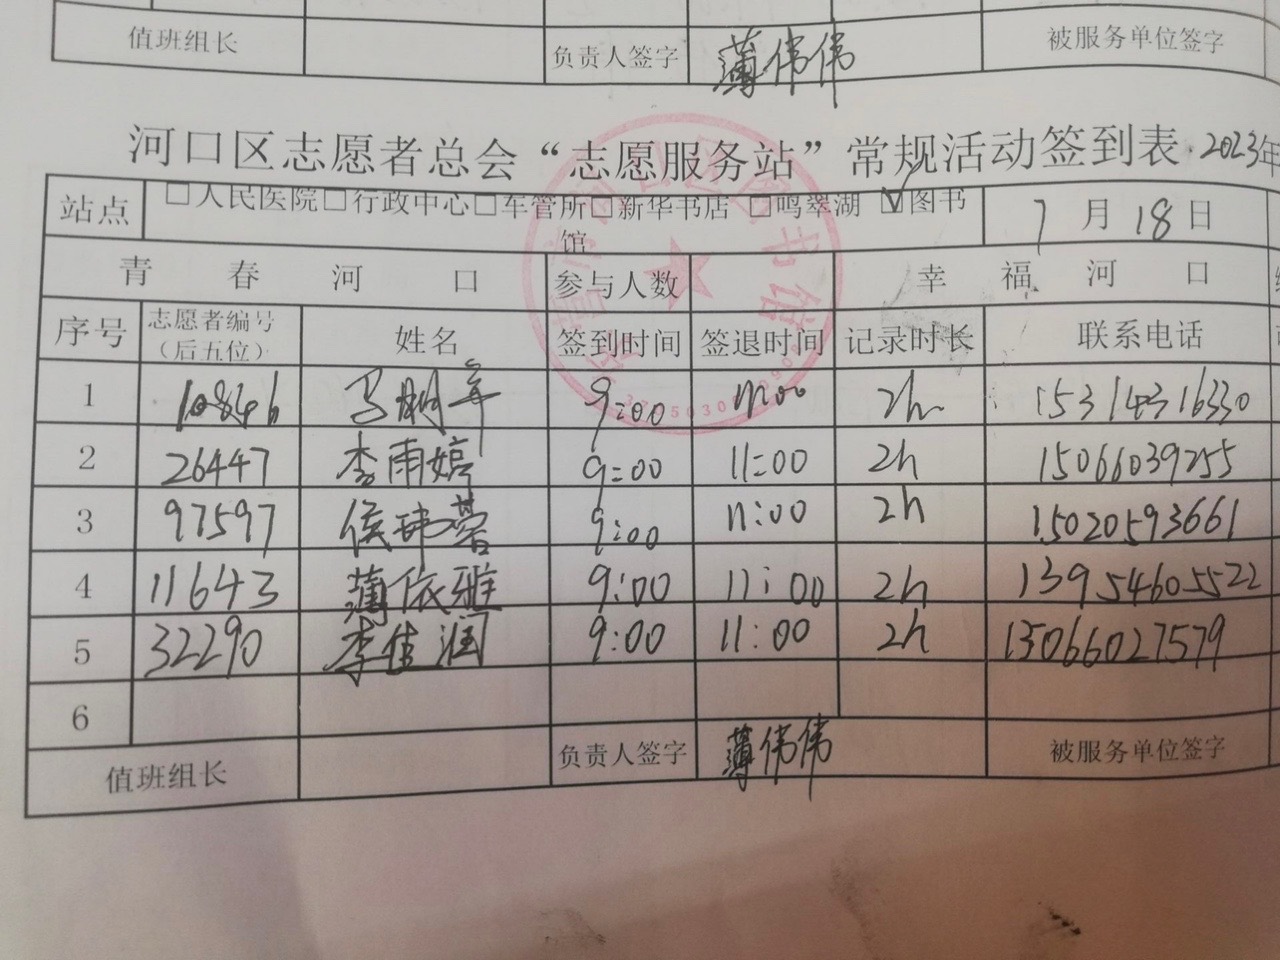 值班组长 负责人签字 薄伟伟 被服务单位签字
河口区志愿者总会“志愿服务站”常规活动签到表 2023年
站点 □人民医院□行政中心□车管所□新华书店 □鸣翠湖 ☑图书 7月18日
馆
青春河口 参与人数 幸福河口
序号 志愿者编号 姓名 签到时间 签退时间 记录时长 联系电话
（后五位）
1 10846 马明 9:00 11:00 2h 15314316330
2 26447 李雨婷 9:00 11:00 2h 15066039255
3 97597 侯玮蓉 9:00 11:00 2h 15020593661
4 11643 薄依雅 9:00 11:00 2h 13954605522
5 32290 李佳润 9:00 11:00 2h 15066027579
6
值班组长 负责人签字 薄伟伟 被服务单位签字